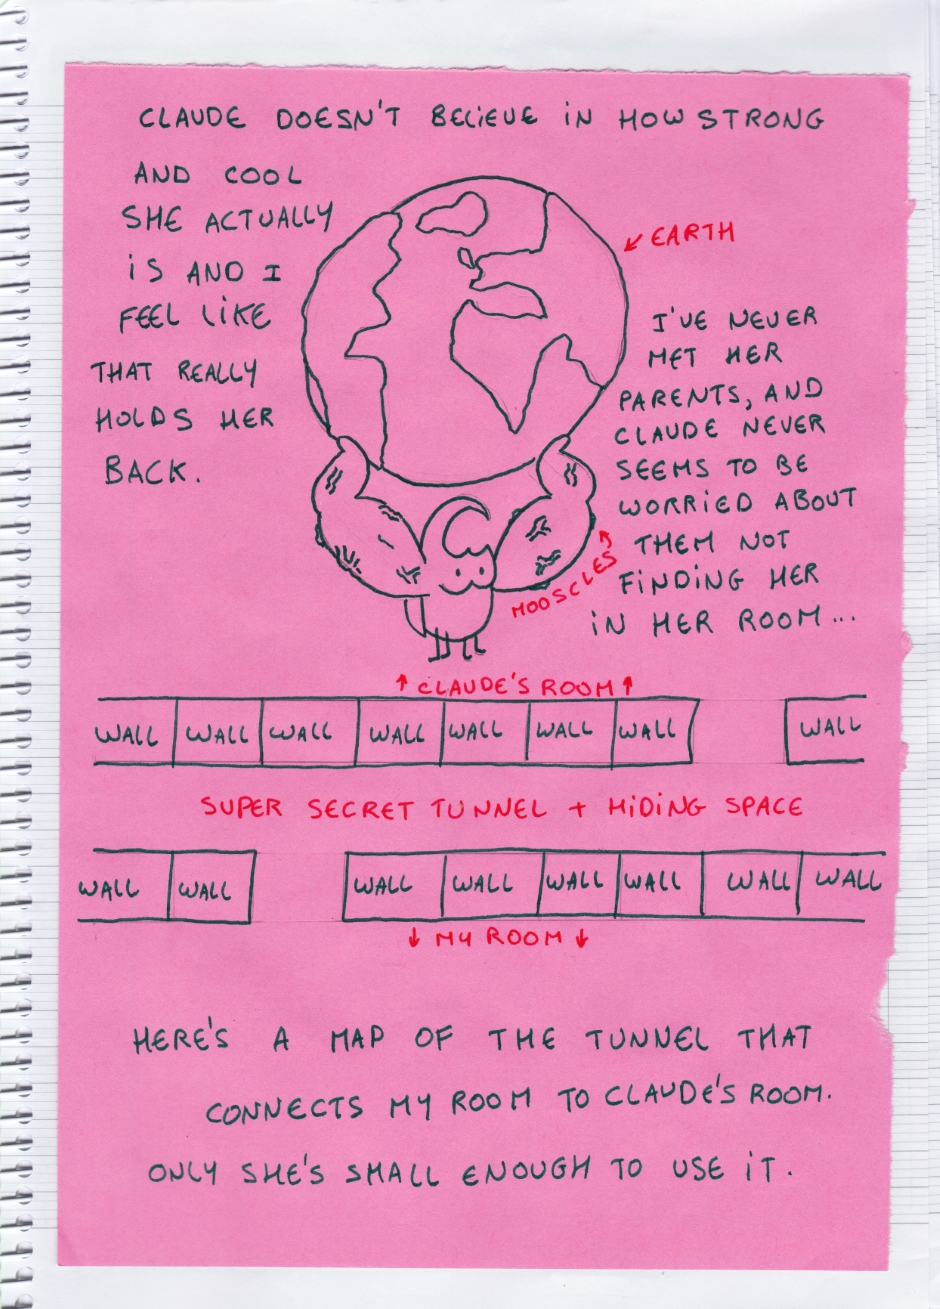 CLAUDE DOESN'T BELIEVE IN HOW STRONG
AND COOL
SHE ACTUALLY
IS AND I
FEEL LIKE
THAT REALLY
HOLDS HER
BACK.
EARTH
I'VE NEVER
MET HER
PARENTS, AND
CLAUDE NEVER
SEEMS TO BE
WORRIED ABOUT
THEM NOT
FINDING HER
IN HER ROOM...
MOOSCLES
CLAUDE'S ROOM
WALL WALL WALL WALL WALL WALL WALL WALL
SUPER SECRET TUNNEL + HIDING SPACE
WALL WALL WALL WALL WALL WALL WALL WALL
MY ROOM
HERE'S A MAP OF THE TUNNEL THAT
CONNECTS MY ROOM TO CLAUDE'S ROOM.
ONLY SHE'S SMALL ENOUGH TO USE IT.